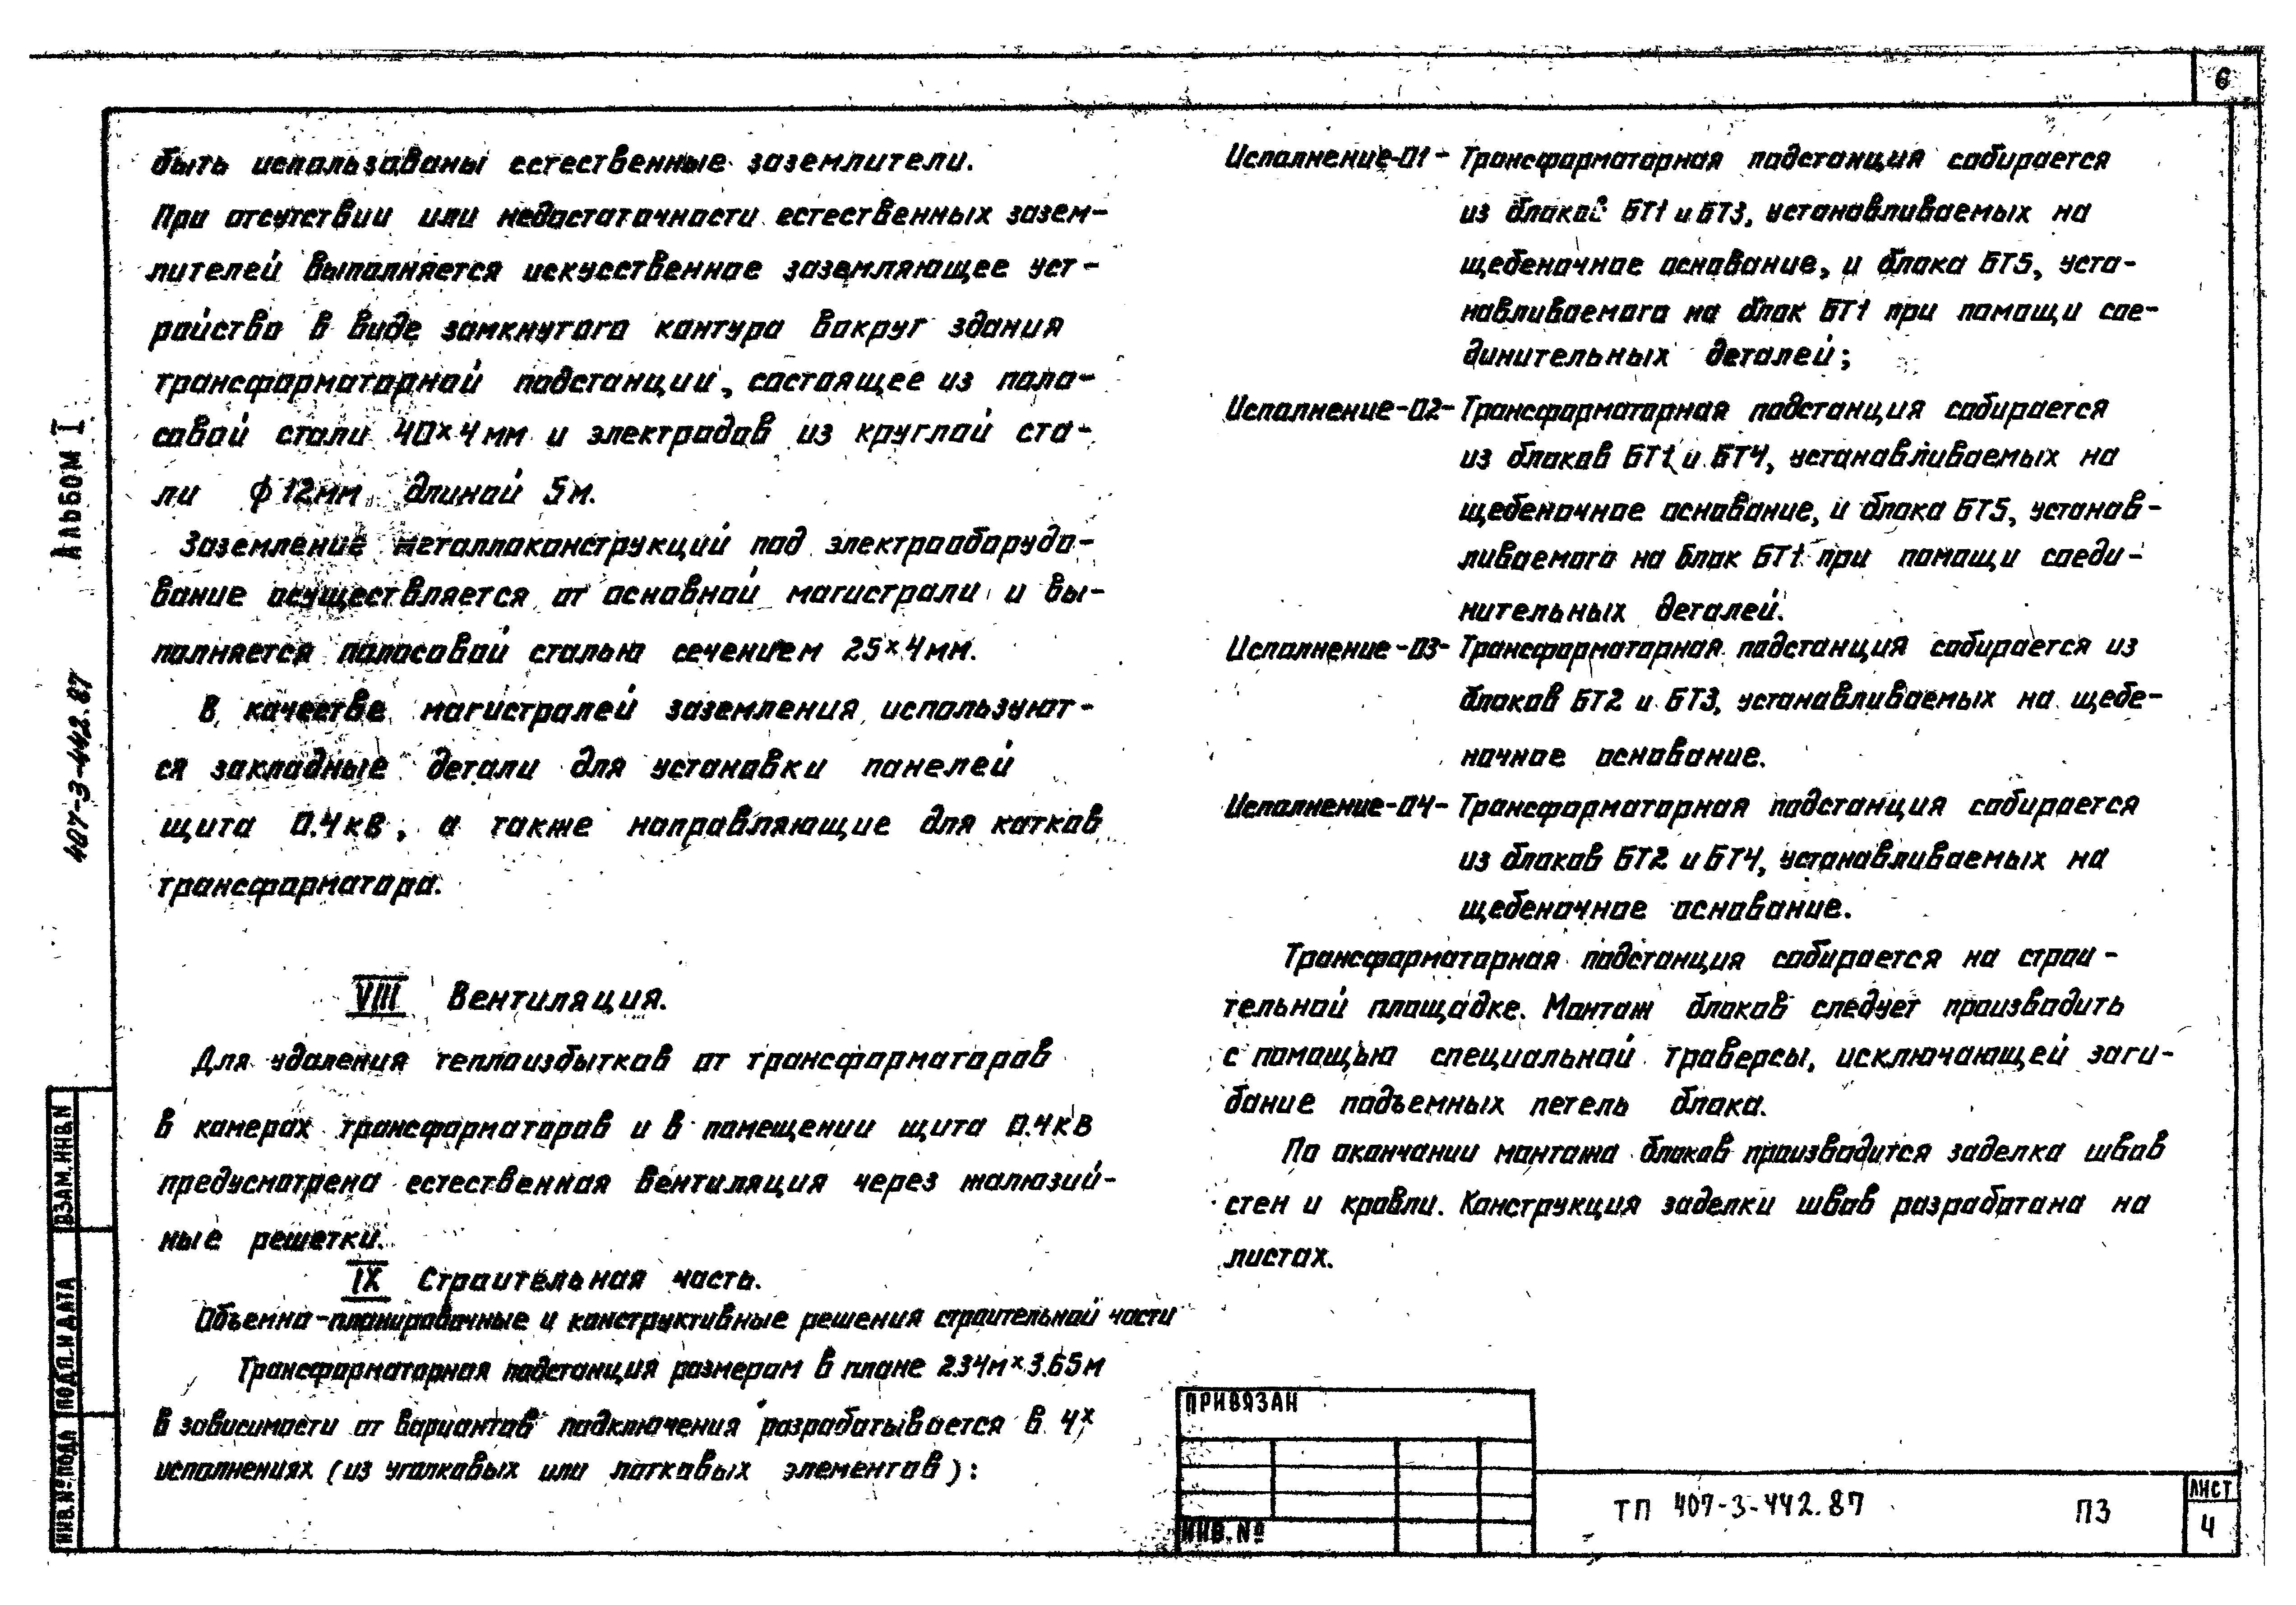 6
быть использованы естественные заземлители.
При отсутствии или недостаточности естественных зазем-
лителей выполняется искусственное заземляющее уст-
ройство в виде замкнутого контура вокруг здания
трансформаторной подстанции, состоящее из поло-
совой стали 40×4 мм и электродов из круглой ста-
ли ф 12мм длиной 5м.
Заземление металлоконструкций под электрооборудо-
вание осуществляется от основной магистрали и вы-
полняется полосовой сталью сечением 25×4мм.
В качестве магистралей заземления используют-
ся закладные детали для установки панелей
щита 0.4кВ, а также направляющие для катков
трансформатора.
VIII Вентиляция.
Для удаления теплоизбытков от трансформаторов
в камерах трансформаторов и в помещении щита 0.4кВ
предусмотрена естественная вентиляция через жалюзий-
ные решетки.
IX Строительная часть.
Объемно-планировочные и конструктивные решения строительной части
Трансформаторная подстанция размером в плане 2.34м×3.65м
в зависимости от вариантов подключения разрабатывается в 4х
исполнениях (из уголковых или лотковых элементов):
Исполнение-01- Трансформаторная подстанция собирается
из блоков БТ1 и БТ3, устанавливаемых на
щебеночное основание, и блока БТ5, уста-
навливаемого на блок БТ1 при помощи сое-
динительных деталей;
Исполнение-02- Трансформаторная подстанция собирается
из блоков БТ1 и БТ4, устанавливаемых на
щебеночное основание, и блока БТ5, устанав-
ливаемого на блок БТ1 при помощи соеди-
нительных деталей.
Исполнение-03- Трансформаторная подстанция собирается из
блоков БТ2 и БТ3, устанавливаемых на щебе-
ночное основание.
Исполнение-04- Трансформаторная подстанция собирается
из блоков БТ2 и БТ4, устанавливаемых на
щебеночное основание.
Трансформаторная подстанция собирается на строи-
тельной площадке. Монтаж блоков следует производить
с помощью специальной траверсы, исключающей заги-
бание подъемных петель блока.
По окончании монтажа блоков производится заделка швов
стен и кровли. Конструкция заделки швов разработана на
листах.
Альбом I
407-3-442.87
ВЗАМ.ИНВ.N
ПОДП.И ДАТА
ИНВ.№ ПОДЛ
ПРИВЯЗАН
ИНВ.№
ТП 407-3-442.87 ПЗ
ЛИСТ
4